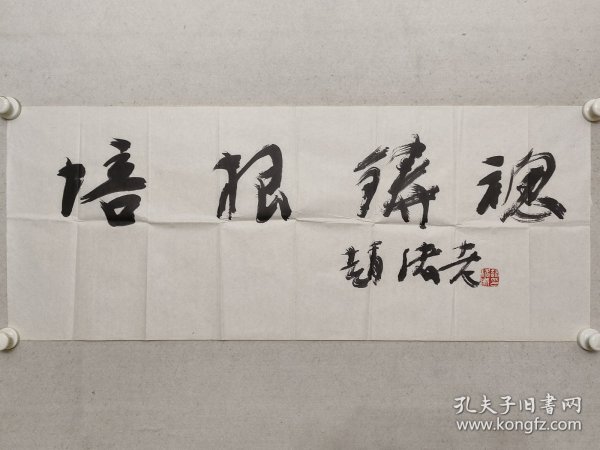 培根鑄魂
趙
孔夫子旧書网
www.kongfz.com